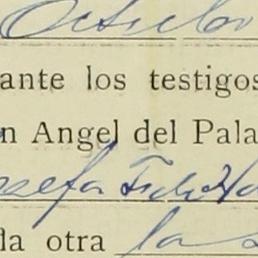 Octubre
ante los testigos
n Angel del Pala
sefa
la otra las